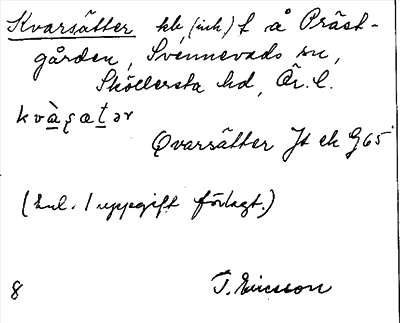 Kvarsätter kk, (inh) t å Präst-
gården, Svennevads sn,
Sköllersta hd, Ör. l.
kvàʂatər
Qvarsätter Jt ek G65
(Enl. 1 uppgift förlagt.)
8 T. Ericsson